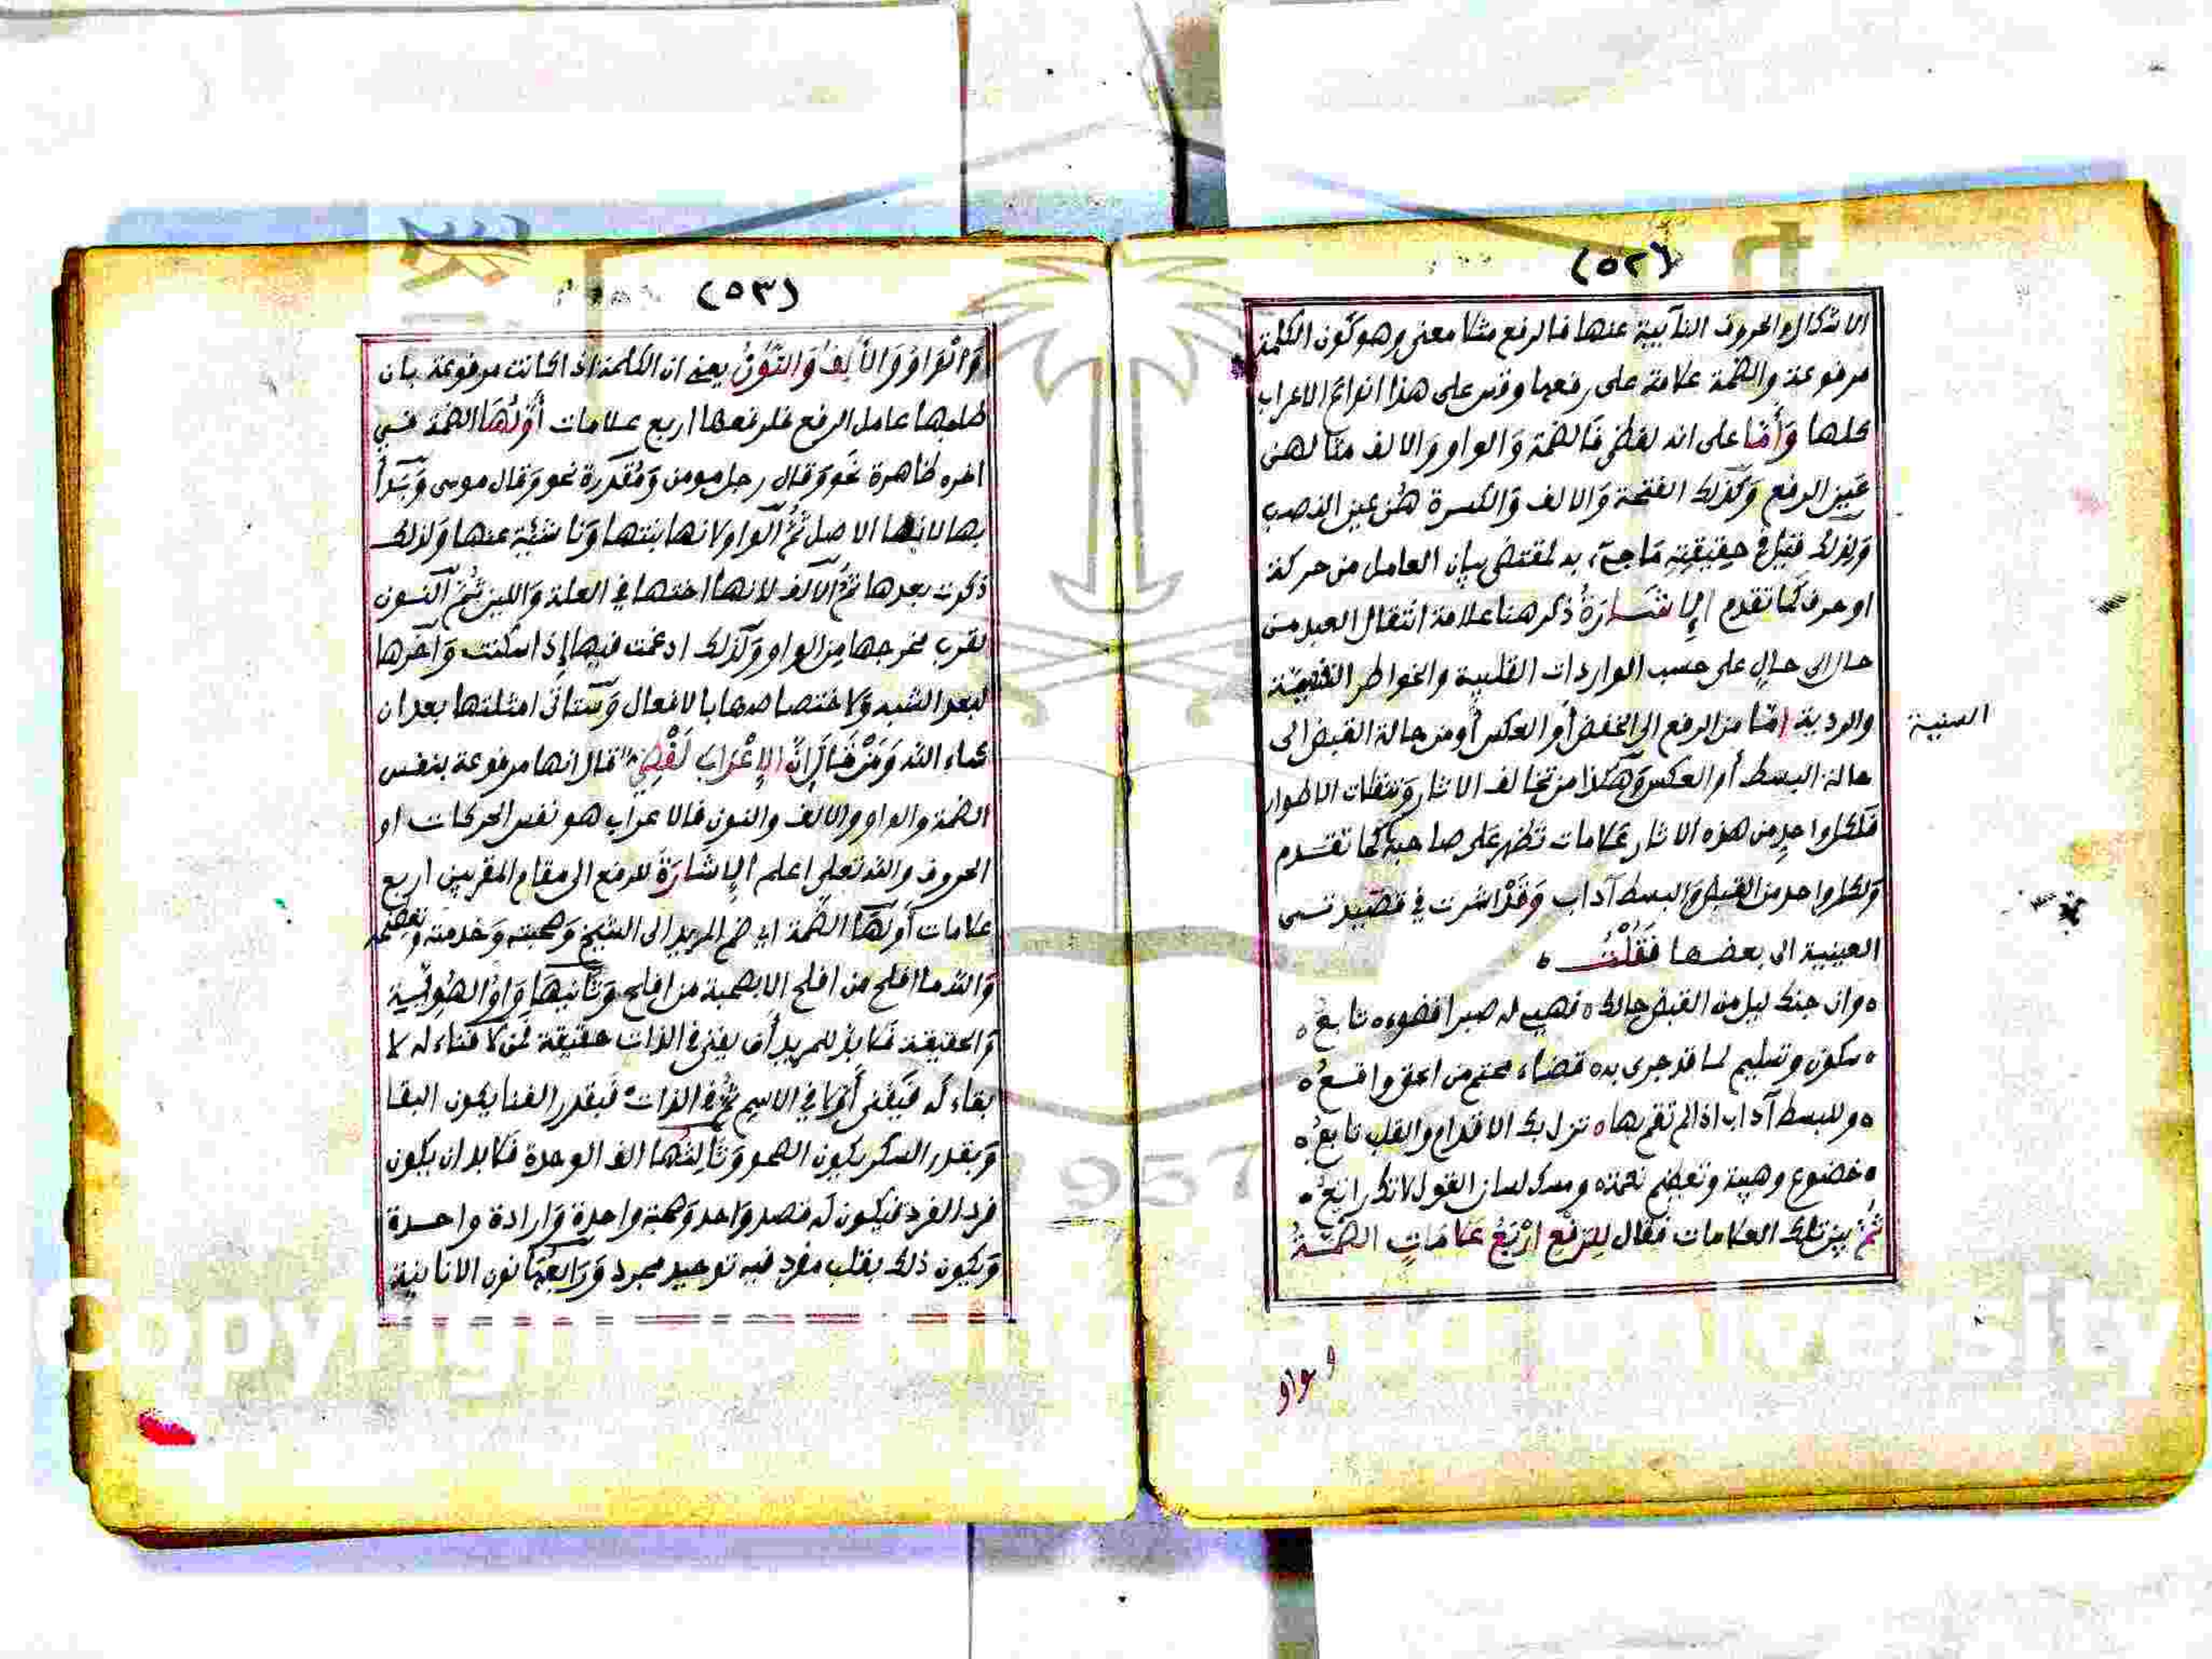 (٥٢)
الاشكال والحروف النائبية عنها فالرفع مثلا معنى وهو كون الكلمة
مرفوعة والضمة علامة على رفعها وقس على هذا انواع الاعراب
كلها وَأَمَّا على انه لفظي فالضمة وَالواو وَالالف مثلا هى
عَين الرفع وَكَذلك الفتحة وَالالف وَالكسرة هُنَّ عين النصب
وَلذلك قيل في حقيقته مَا جيء به لمقتضى بيان العامل من حركة
او حرف كما تقدم الإشَارَةُ ذكر هنا علامة انتقال العبد من
حال الى حال على حسب الواردات القلبية والخواطر النفسية
السنية
والردية امّا من الرفع الى الخفض أو العكس أو من حالة القبض الى
حالة البسط أو العكس وَهكذا من تخالف الاثار وَتنقلات الاطوار
فلكل واحد من هذه الاثار علامات تظهر على صاحبه كما تقدم
وَلكل واحد من القبض وَالبسط آداب وَقَدْ اشرت في قصيد تسمى
العينية الى بعضها فَقُلْتُ ه
ه وان جنك ليل من القبض حالك ه فهيء له صبرا فضوءه تابع ه
ه سكون وتسليم لما قد جرى به ه قضاء محتم من الحق واقعُ ه
ه وللبسط آداب اذا لم تقم بها ه تزل بك الاقدام والقلب تابعُ ه
ه خضوع وهيبة وتعظيم نعمة ه ومسك لسان القول لانك رايعُ ه
ثُمَّ بين تلك العلامات فقال لِلرَّفْعِ أرْبَعُ عَلامَاتٍ الضَّمَّةُ
والواو
(٥٣)
وَالْوَاوُ وَالأَلِفُ وَالنُّوْنُ يعني ان الكلمة اذا كانت مرفوعة بان
طلبها عامل الرفع فلرفعها اربع علامات أَوَّلُهَا الضمة في
اخره ظاهرة نحو وَقال رجل مومن وَمُقدرة نحو وَقال موسى وَبَدأ
بها لانها الاصل ثُمَّ الواو لانها بنتها وَناشئة عنها وَلذلك
ذكرت بعدها ثمّ الالف لانها اختها في العلة وَاللين ثُمّ النون
لقرب مخرجها من الواو وَكذلك ادغمت فيها إذ اسكنت وَآخرها
لبعد الشبه وَلاختصاصها بالافعال وَستاتى امثلتها بعد ان
شاء الله وَمَنْ قَالَ إِنَّ الإِعْرَابَ لَفْظِيٌ قال انها مرفوعة بنفس
الضمة والواو والالف والنون فالاعراب هو نفس الحركات او
الحروف والله تعلى اعلم الإشَارَةُ للرفع الى مقام المقربين اربع
علامات أَولها الضَّمة اي ضم المريد الى الشيخ وَصحبته وَخدمته وتعظيمه
وَالله ما افلح من افلح الا بصحبة من افلح وَثانيهَا وَاوُ الهُويّية
وَالحقيقة فلا بد للمريد أن يفنى في الذات حقيقة فمن لا فناء له لا
بقاء لَه فَيَفْنَى أَوّلا في الاسم ثمّ في الذات فَبقدر الفنا يكون البقا
وَبقدر السكر يكون الصحو وَثَالثُهَا الف الوحدة فَلا بد ان يكون
فردا لفرد فيكون له قصد وَاحد وَهمة واحدة وَارادة واحدة
وَيكون ذلك بقلب مفرد فيه توحيد مجرد وَرَابعُهَا نون الانانية
1957
Copyright © King Saud University